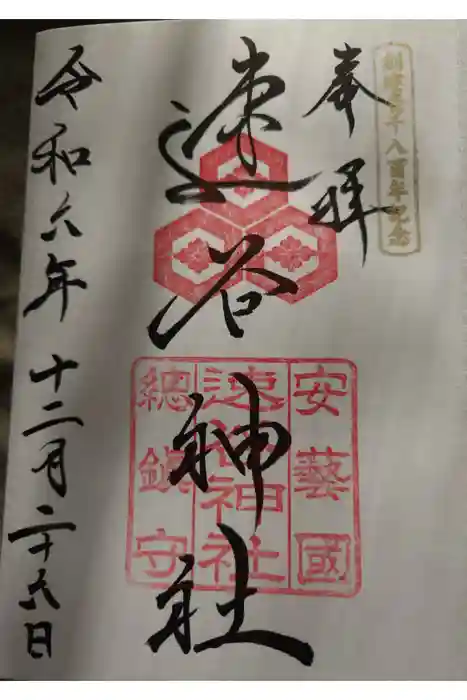 創建壱千八百年記念
奉拝
速谷神社
安藝國
速谷神社
総鎮守
令和六年十二月二十六日